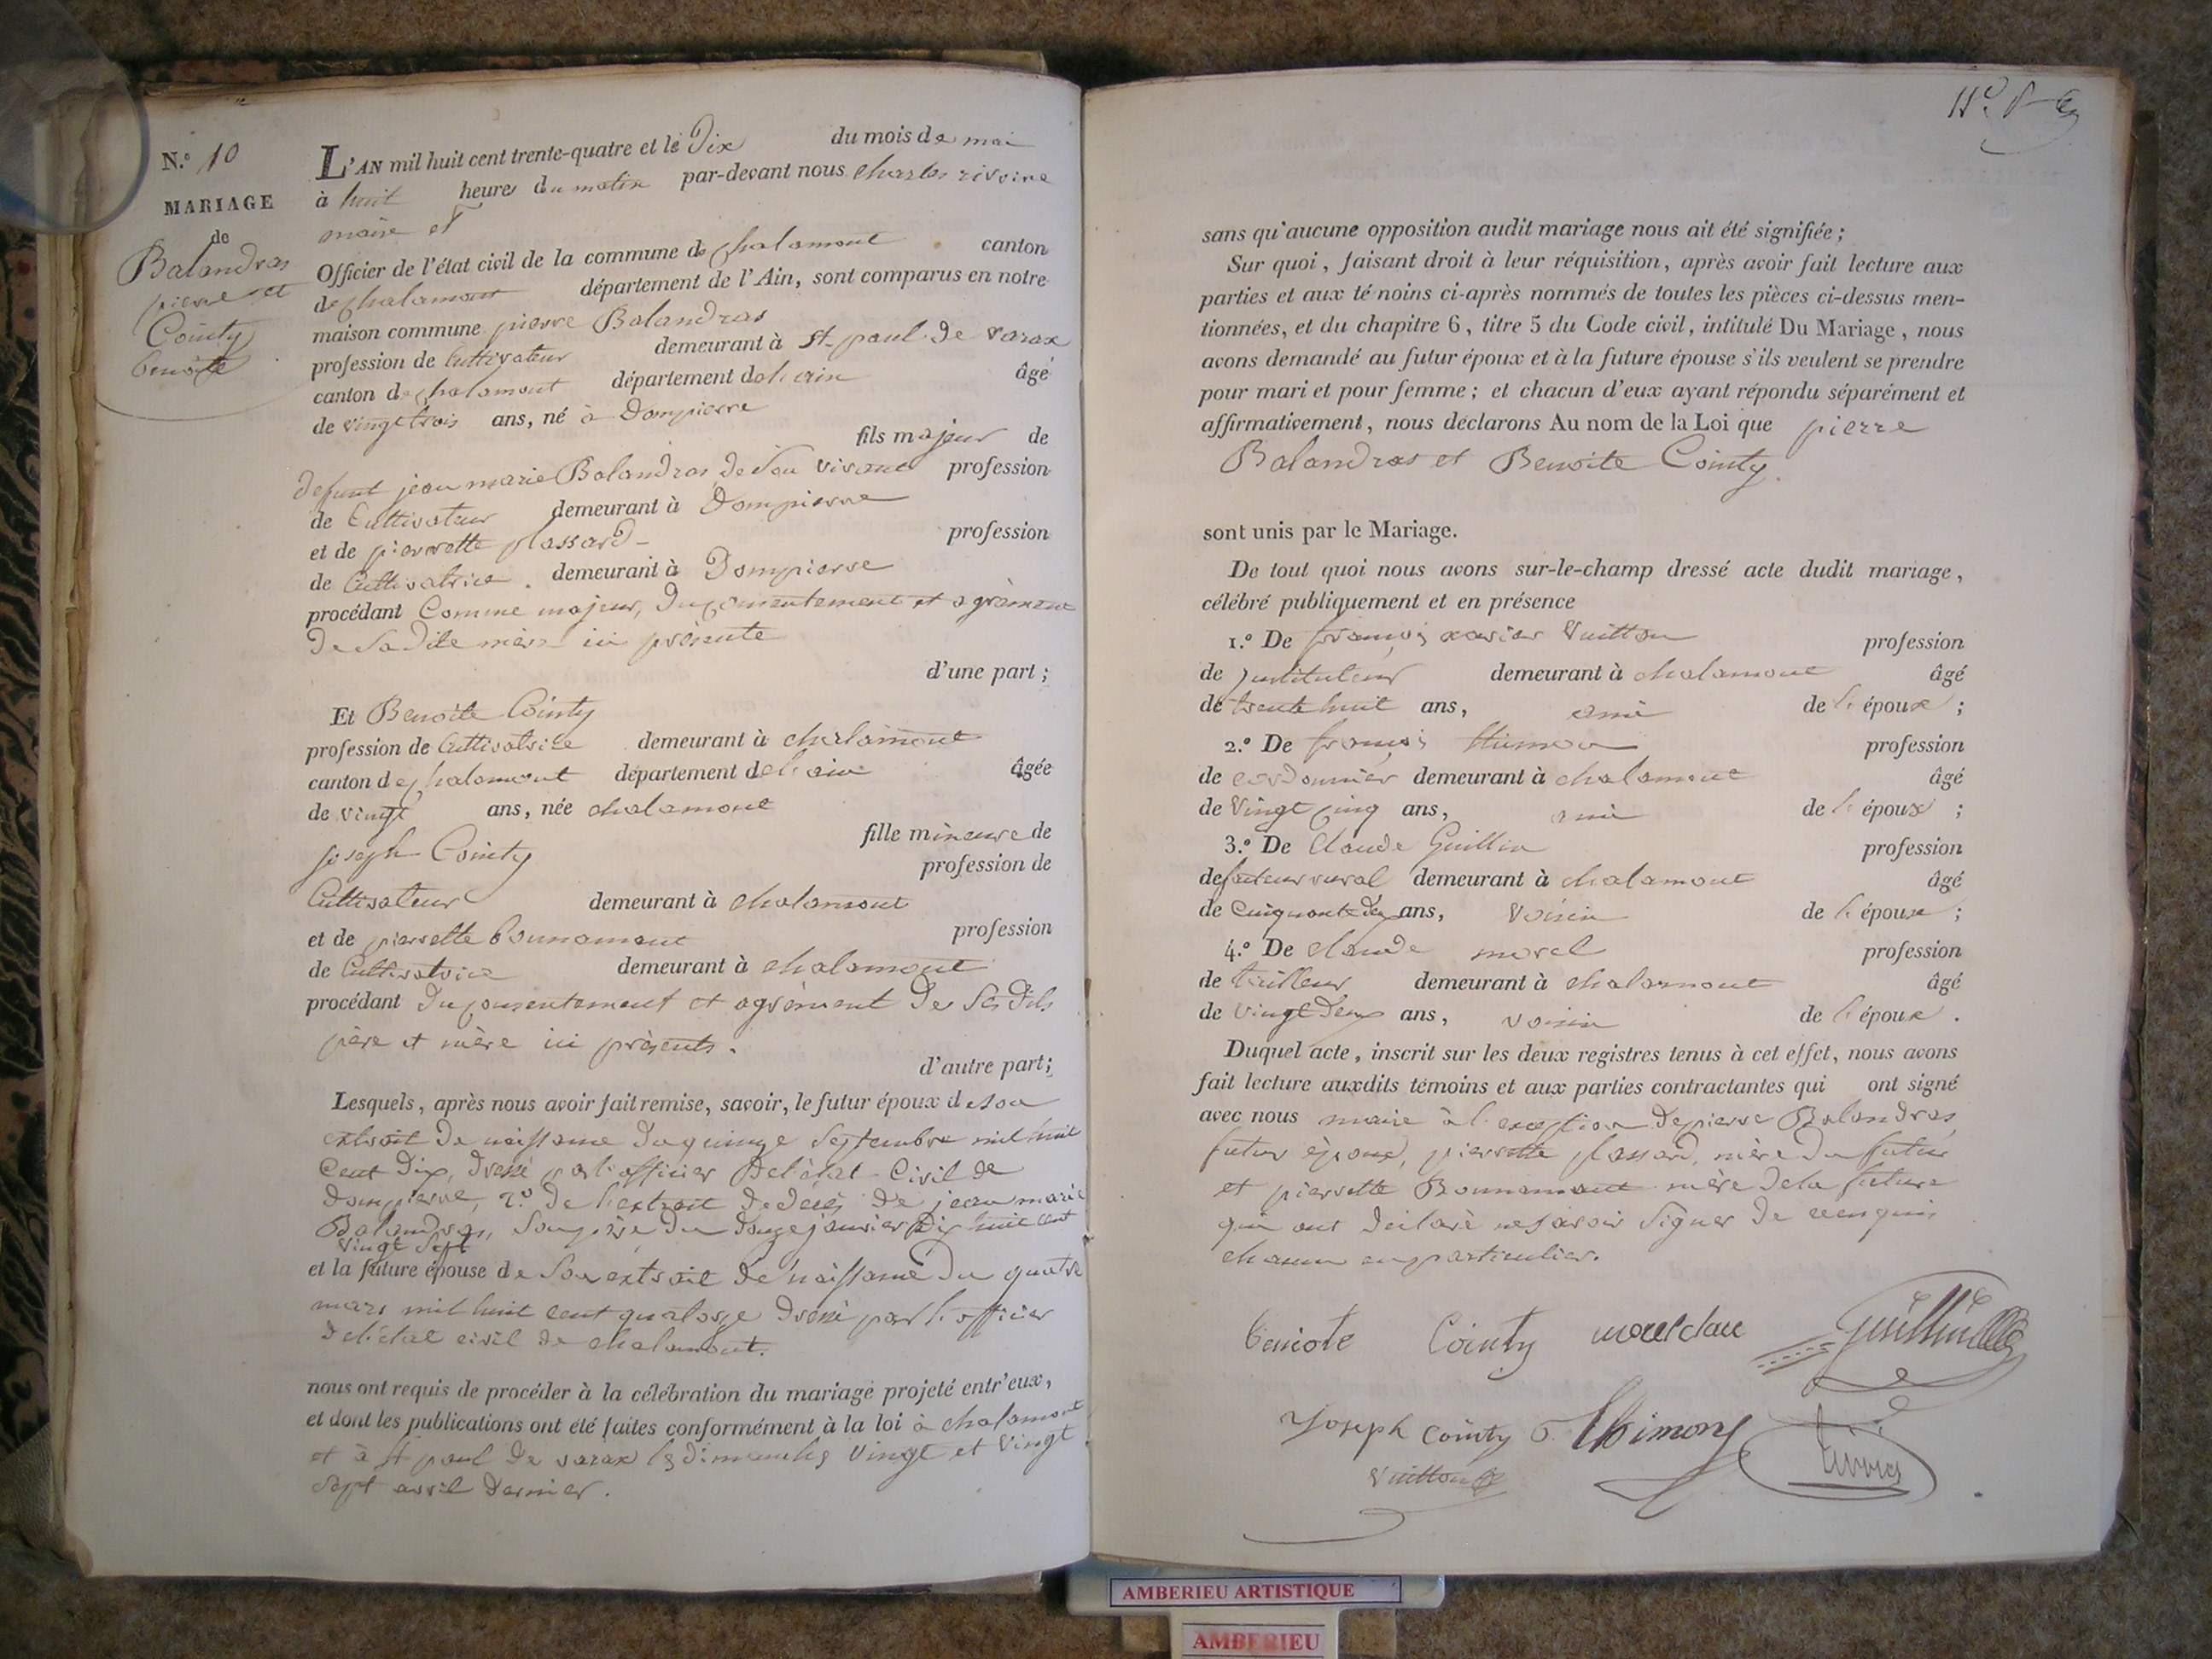 N.º 10
MARIAGE
de
Balandras
pierre et
Cointy
benoite
L'AN mil huit cent trente-quatre et le Dix du mois de mai
à huit heures du matin par-devant nous charles rivoire
maire et
Officier de l'état civil de la commune de chalamont canton
de chalamont département de l'Ain, sont comparus en notre
maison commune pierre Balandras
profession de Cultivateur demeurant à st. paul de varax
canton de chalamont département de l'ain âgé
de vingt trois ans, né à Dompierre
fils majeur de
defunt jean marie Balandras de son vivant profession
de Cultivateur demeurant à Dompierre
et de pierrette plassard profession
de Cultivatrice. demeurant à Dompierre
procédant Comme majeur, du consentement et agrèment
De Sa dite mère ici présente
d'une part ;
Et Benoite Cointy
profession de Cultivatrice demeurant à chalamont
canton de chalamont département de l'ain âgée
de vingt ans, née chalamont
fille mineure de
joseph Cointy profession de
Cultivateur demeurant à chalamont
et de pierrette bonnamont profession
de Cultivatrice demeurant à chalamont
procédant du consentement et agrèment De Ses dits
père et mère ici présents.
d'autre part;
Lesquels, après nous avoir fait remise, savoir, le futur époux de son
extrait de naissance du quinze Septembre mil huit
Cent Dix, dressé par l'officier De l'état Civil de
Dompierre, 2.º De l'extrait de décès de jean marie
Balandras, Son père du Douze janvier dix huit cent
vingt Sept
et la future épouse de Son extrait de naissance Du quatre
mars mil huit cent quatorze dressé par l'officier
de l'état civil de chalamont.
nous ont requis de procéder à la célébration du mariage projeté entr'eux,
et dont les publications ont été faites conformément à la loi à chalamont
et à st paul de varax les dimanches vingt et vingt
Sept avril dernier.
sans qu'aucune opposition audit mariage nous ait été signifiée ;
Sur quoi, faisant droit à leur réquisition, après avoir fait lecture aux
parties et aux té noins ci-après nommés de toutes les pièces ci-dessus men-
tionnées, et du chapitre 6, titre 5 du Code civil, intitulé Du Mariage, nous
avons demandé au futur époux et à la future épouse s'ils veulent se prendre
pour mari et pour femme ; et chacun d'eux ayant répondu séparément et
affirmativement, nous déclarons Au nom de la Loi que pierre
Balandras et Benoite Cointy.
sont unis par le Mariage.
De tout quoi nous avons sur-le-champ dressé acte dudit mariage,
célébré publiquement et en présence
1.º De françois xavier Vuitton profession
de Jnstituteur demeurant à chalamont âgé
de trente huit ans, ami de l'époux ;
2.º De françois thimon profession
de cordonnier demeurant à chalamont âgé
de Vingt cinq ans, ami de l'époux ;
3.º De Claude Guillin profession
de facteur rural demeurant à chalamont âgé
de Cinquante dex ans, voisin de l'époux ;
4.º De claude morel profession
de tailleur demeurant à chalamont âgé
de vingt deux ans, voisin de l'époux .
Duquel acte, inscrit sur les deux registres tenus à cet effet, nous avons
fait lecture auxdits témoins et aux parties contractantes qui ont signé
avec nous maire à l'exception de pierre Balandras,
futur époux, pierrette plassard, mère du futur
et pierrette Bonnamont mère de la future
qui ont déclaré ne savoir Signer de ce enquis
chacun en particulier.
beniote Cointy morel clau
Joseph Cointy thimony
Vuitton
AMBERIEU ARTISTIQUE
AMBERIEU